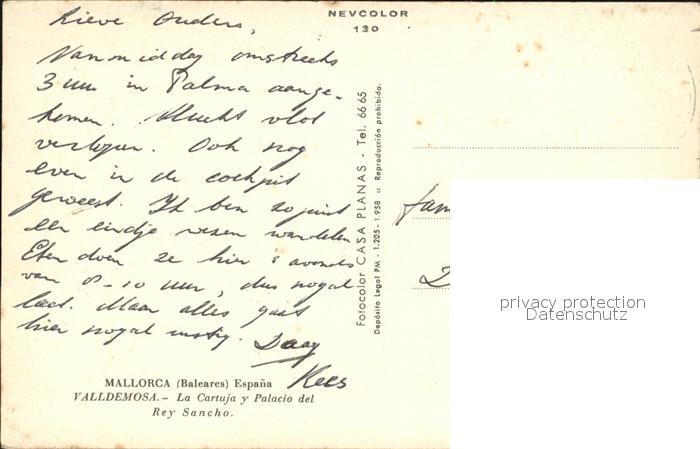 NEVCOLOR
130
Lieve Ouders,
Vanmiddag omstreeks
3 uur in Palma aange-
komen. Vlucht vlot
verlopen. Ook nog
even in de cockpit
geweest. Ik ben zojuist
een eindje wezen wandelen
Eten doen ze hier 's avonds
van 8-10 uur, dus nogal
laat. Maar alles gaat
hier nogal rustig. Daag
Kees
MALLORCA (Baleares) España
VALLDEMOSA.- La Cartuja y Palacio del
Rey Sancho.
Fotocolor CASA PLANAS - Tel. 66 65
Depósito Legal PM - 1.205 - 1.958 :: Reproducción prohibida.
fam
privacy protection
Datenschutz